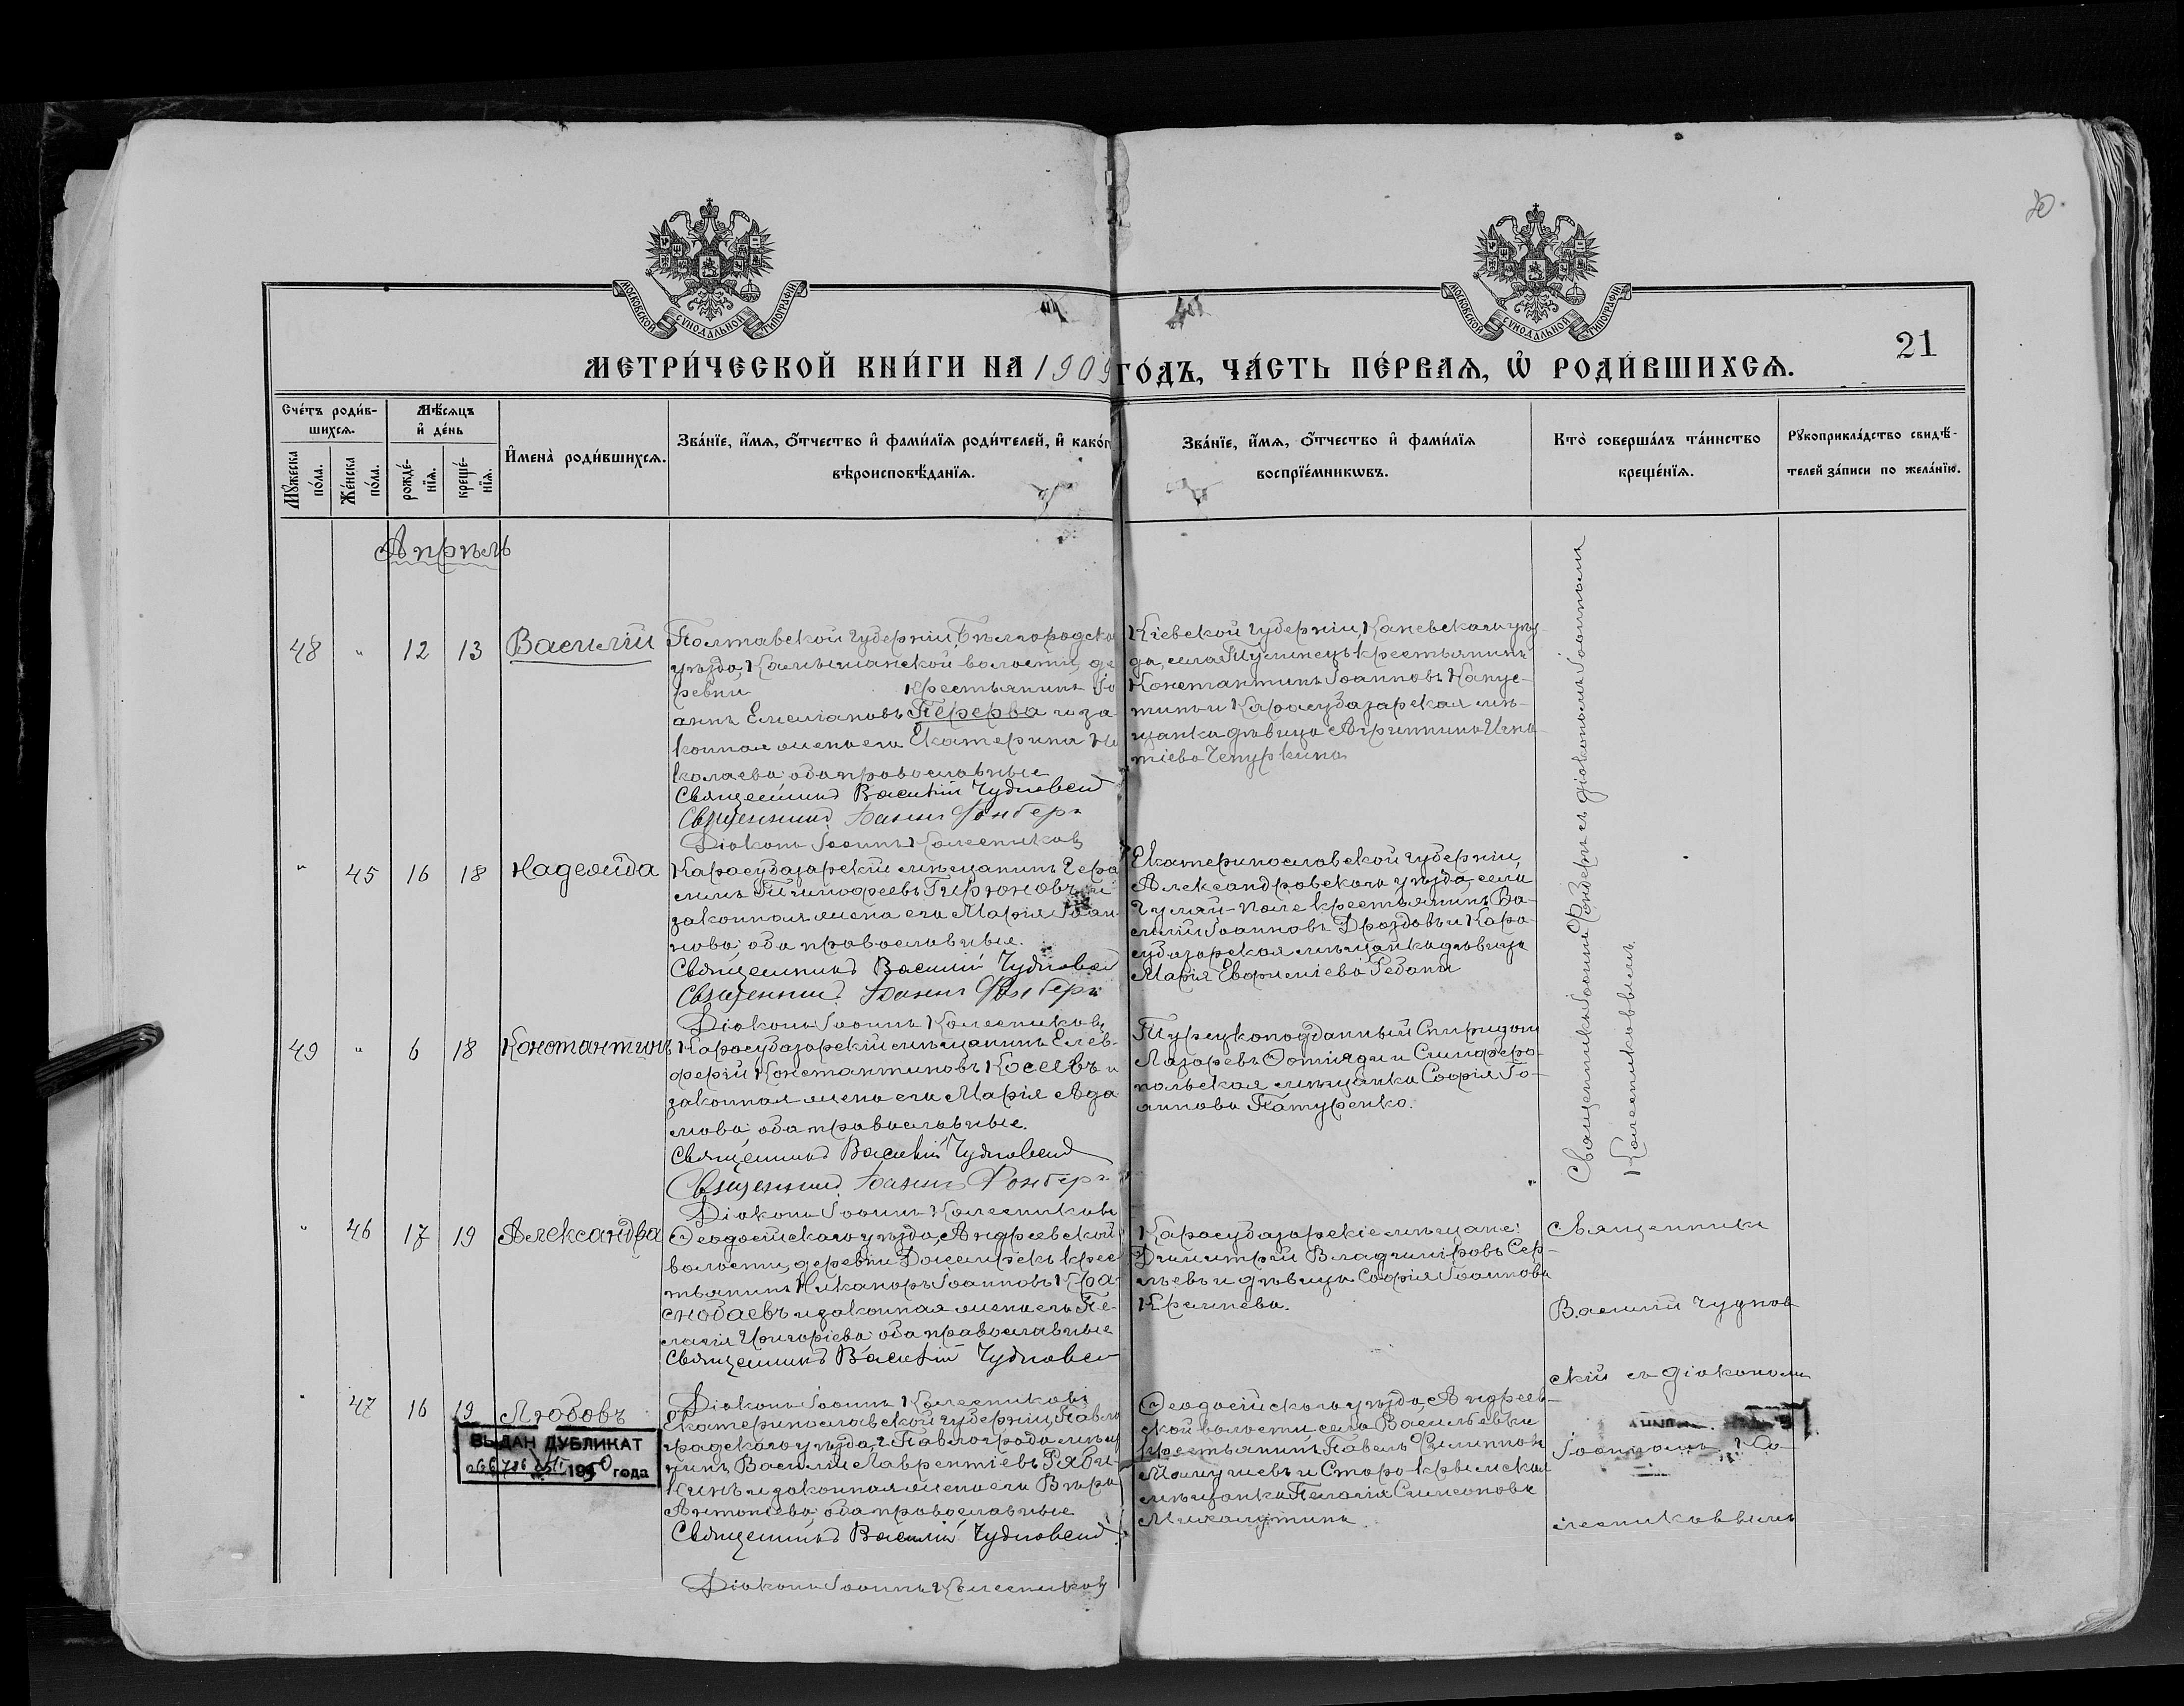 20.
МОСКОВСКОЙ СУНОДАЛЬНОЙ ТИПОГРАФІИ
МОСКОВСКОЙ СУНОДАЛЬНОЙ ТИПОГРАФІИ
21
МЕТРИ́ЧЕСКОЙ КНИ́ГИ НА 1909 ГО́ДЪ, ЧА́СТЬ ПЕ́РВАѦ, Ѡ҆ РОДИ́ВШИХСѦ.
Сче́тъ роди́в-
шихсѧ.
Мꙋ́жеска по́ла.
Же́нска по́ла.
Мѣ́сѧцъ
и҆ де́нь
рожде́-
нїѧ.
креще́-
нїѧ.
И҆мена̀ роди́вшихсѧ.
Зва́нїе, и҆́мѧ, ѻ҆́тчество и҆ фами́лїѧ роди́телей, и҆ како́г
вѣроисповѣ́данїѧ.
Зва́нїе, и҆́мѧ, ѻ҆́тчество и҆ фами́лїѧ
воспрїе́мникѡвъ.
Кто̀ соверша́лъ та́инство
креще́нїѧ.
Рꙋкоприкла́дство свидѣ́-
телей за́писи по жела́нїю.
Апрѣль
48 " 12 13 Василій
Полтавской губерніи, Бѣлгородска
уѣзда, Камышанской волости, де
ревни крестьянинъ Іо
аннъ Емеліановъ Перерва и за-
конная жена его Екатерина Ни
колаева, оба православные
Священникъ Василій Чудновск
Священникъ Іоаннъ Фонберг
Діаконъ Іоаннъ Колесниковъ
Кіевской губерніи, Каневскаго уѣз
да, села Тулинецъ крестьянинъ
Константинъ Іоанновъ Капус-
тинъ и Карасубазарская мѣ-
щанка дѣвица Агриппина Игна
тіева Чепуркина
Священникъ Іоаннъ Фонберг съ діакономъ Іоанномъ
Колесниковымъ.
" 45 16 18 Надежда
Карасубазарскій мѣщанинъ Гера
симъ Тимофеевъ Гирюновъ и
законная жена его Марія Іоан-
нова, оба православные.
Священникъ Василій Чудновск
Священникъ Іоаннъ Фонберг
Діаконъ Іоаннъ Колесниковъ
Екатеринославской губерніи,
Александровскаго уѣзда, села
Гуляй-Поле крестьянинъ Ва-
силій Іоанновъ Дроздовъ и Кара-
субазарская мѣщанка дѣвица
Марія Евфиміева
49 " 6 18 Константинъ
Карасубазарскій мѣщанинъ Елев-
ферій Константиновъ Косеевъ и
законная жена его Марія Ада
мова, оба православные.
Священникъ Василій Чудновск
Священникъ Іоаннъ Фонберг
Діаконъ Іоаннъ Колесниковъ
Турецкоподданный Спиридонъ
Лазаревъ Фотіяди и Симферо-
польская мѣщанка Софія Іо-
аннова Патуренко.
" 46 17 19 Александра
Ѳеодосійскаго уѣзда, Андреевской
волости, деревни крес
тьянинъ Никаноръ Іоанновъ Кра-
снобаевъ и законная жена его Пе-
лагія Григоріева, оба православные
Священникъ Василій Чудновск
Діаконъ Іоаннъ Колесниковъ
Карасубазарскіе мѣщане:
Димитрій Владиміровъ Сер-
ѣевъ и дѣвица Софія Іоаннова
Священникъ
Василій Чуднов
скій съ діакономъ
Іоанномъ Ко-
лесниковымъ
" 47 16 19 Любовь
ВЫДАН ДУБЛИКАТ
1950 года
Екатеринославской губерніи, Павло
градскаго уѣзда, г. Павлограда мѣща
нинъ Василій Лаврентіевъ Ряби-
нинъ и законная жена его Вѣра
Антоніева, оба православные
Священникъ Василій Чудновск
Діаконъ Іоаннъ Колесниковъ
Ѳеодосійскаго уѣзда, Андреев-
ской волости, села Васильевки
крестьянинъ Павелъ Филиппов
и Старо-Крымская
мѣщанка Пелагія Симеонова